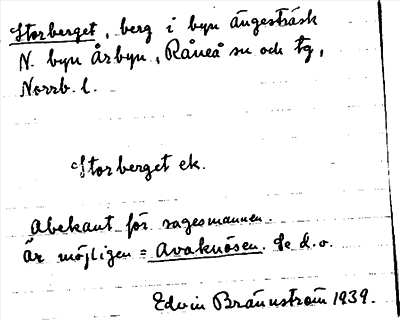 Storberget, berg i byn Ängesträsk
N. byn Årbyn, Råneå sn och tg,
Norrb. l.
Storberget ek.
Obekant för sagesmannen.
Är möjligen = Avaknösen. Se d.o.
Edvin Brännström 1939.